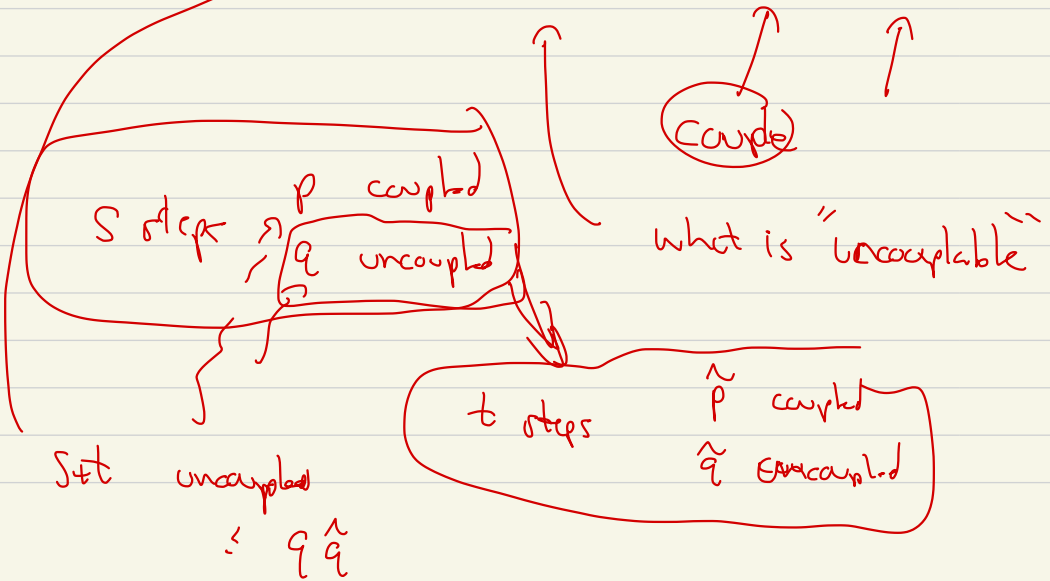 Couple
p coupled
S steps
q uncoupled
what is "uncouplable"
t steps p̃ coupled
q̃ uncoupled
S+t uncoupled
≤ q q̃